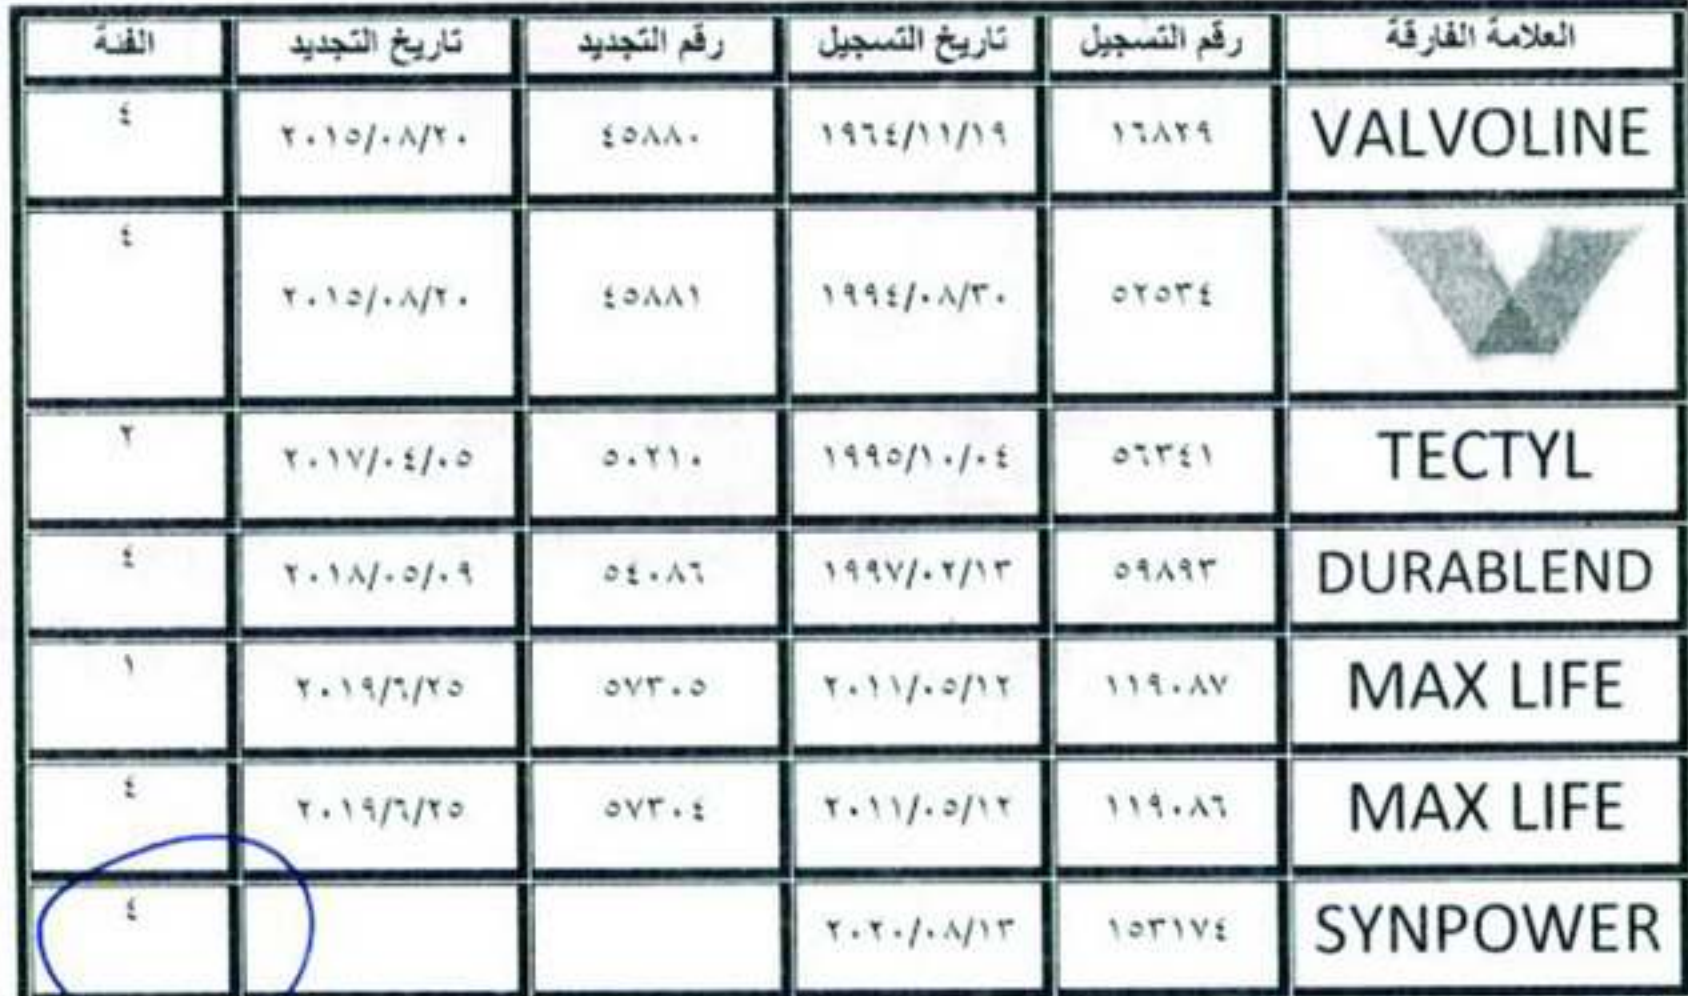 العلامة الفارقة رقم التسجيل تاريخ التسجيل رقم التجديد تاريخ التجديد الفئة
VALVOLINE ١٦٨٢٩ ١٩٦٤/١١/١٩ ٤٥٨٨٠ ٢٠١٥/٠٨/٢٠ ٤
٥٢٥٣٤ ١٩٩٤/٠٨/٣٠ ٤٥٨٨١ ٢٠١٥/٠٨/٢٠ ٤
TECTYL ٥٦٣٤١ ١٩٩٥/١٠/٠٤ ٥٠٢١٠ ٢٠١٧/٠٤/٠٥ ٢
DURABLEND ٥٩٨٩٣ ١٩٩٧/٠٢/١٣ ٥٤٠٨٦ ٢٠١٨/٠٥/٠٩ ٤
MAX LIFE ١١٩٠٨٧ ٢٠١١/٠٥/١٢ ٥٧٣٠٥ ٢٠١٩/٦/٢٥ ١
MAX LIFE ١١٩٠٨٦ ٢٠١١/٠٥/١٢ ٥٧٣٠٤ ٢٠١٩/٦/٢٥ ٤
SYNPOWER ١٥٣١٧٤ ٢٠٢٠/٠٨/١٣ ٤